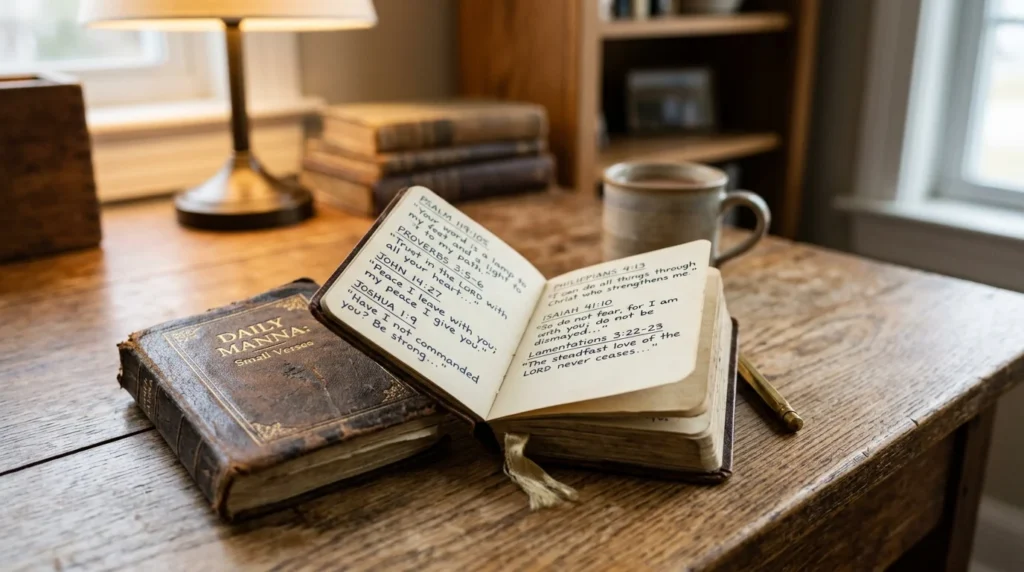 DAILY
MANNA:
Small Verses
PSALM 119:105
"Your word is a lamp to
my feet and a light
to my path."
PROVERBS 3:5-6
"Trust in the LORD with
all your heart..."
JOHN 14:27
"Peace I leave with you;
my peace I give you."
JOSHUA 1:9
"Have I not commanded
you? Be strong..."
PHILIPPIANS 4:13
"I can do all things through
Christ who strengthens me."
ISAIAH 41:10
"So do not fear, for I am
with you; do not be
dismayed..."
Lamentations 3:22-23
"The steadfast love of the
LORD never ceases..."